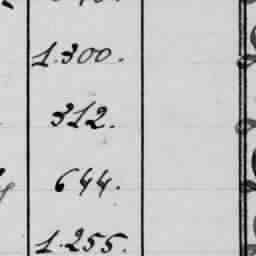 1.300.
312.
644.
1.255.